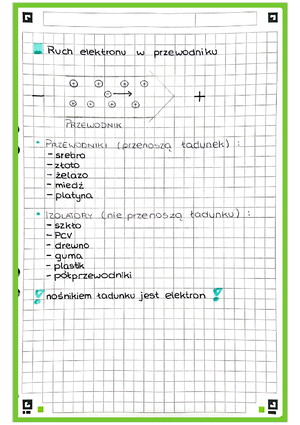 Ruch elektronu w przewodniku
- +
PRZEWODNIK
• PRZEWODNIKI (przenoszą ładunek) :
- srebro
- złoto
- żelazo
- miedź
- platyna
• IZOLATORY (nie przenoszą ładunku) :
- szkło
- PCV
- drewno
- guma
- plastik
- półprzewodniki
! nośnikiem ładunku jest elektron !